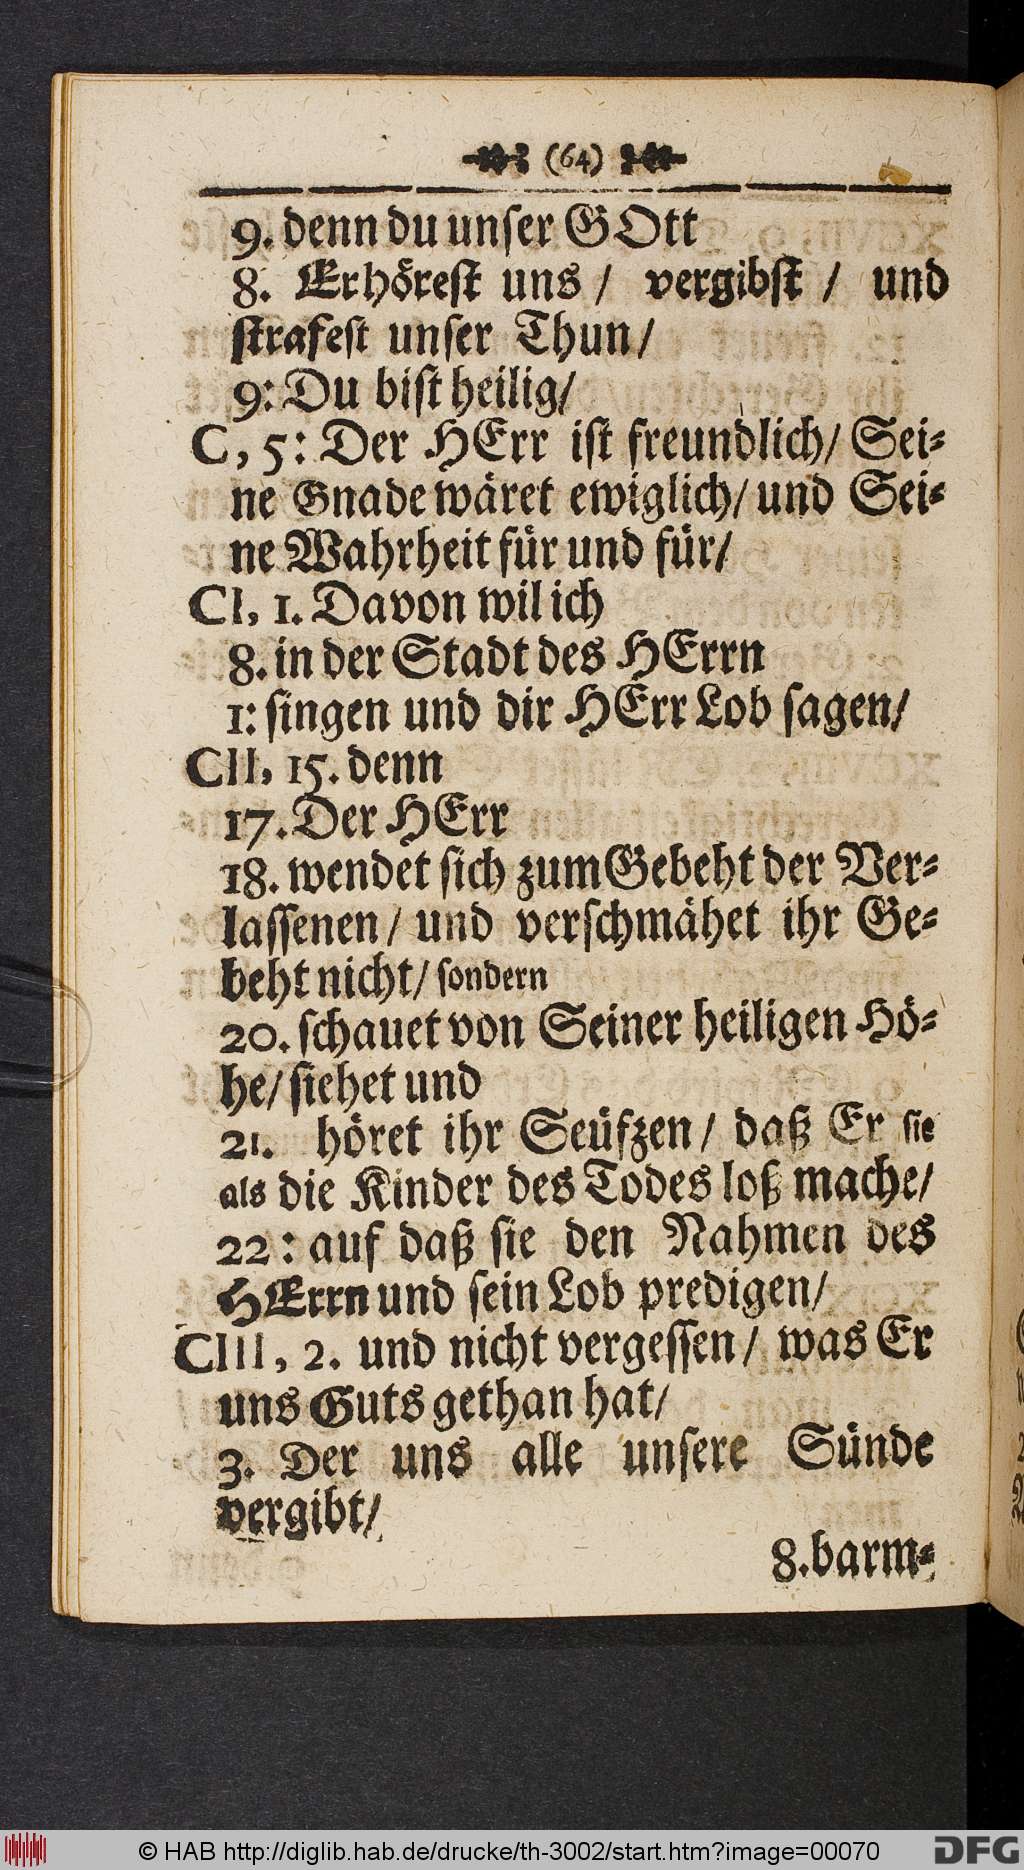 (64)
9. denn du unſer GOtt
8. Erhöreſt uns / vergibſt / und
ſtrafeſt unſer Thun/
9: Du biſt heilig/
C, 5: Der HErr iſt freundlich/ Sei⸗
ne Gnade wäret ewiglich/ und Sei⸗
ne Wahrheit für und für/
CI, 1. Davon wil ich
8. in der Stadt des HErrn
1: ſingen und dir HErr Lob ſagen/
CII, 15. denn
17. Der HErr
18. wendet ſich zum Gebeht der Ver⸗
laſſenen/ und verſchmähet ihr Ge⸗
beht nicht/ ſondern
20. ſchauet von Seiner heiligen Hö⸗
he/ ſiehet und
21. höret ihr Seüfzen/ daß Er ſie
als die Kinder des Todes loß mache/
22: auf daß ſie den Nahmen des
HErrn und ſein Lob predigen/
CIII, 2. und nicht vergeſſen/ was Er
uns Guts gethan hat/
3. Der uns alle unſere Sünde
vergibt/
8. barm⸗
© HAB http://diglib.hab.de/drucke/th-3002/start.htm?image=00070
DFG